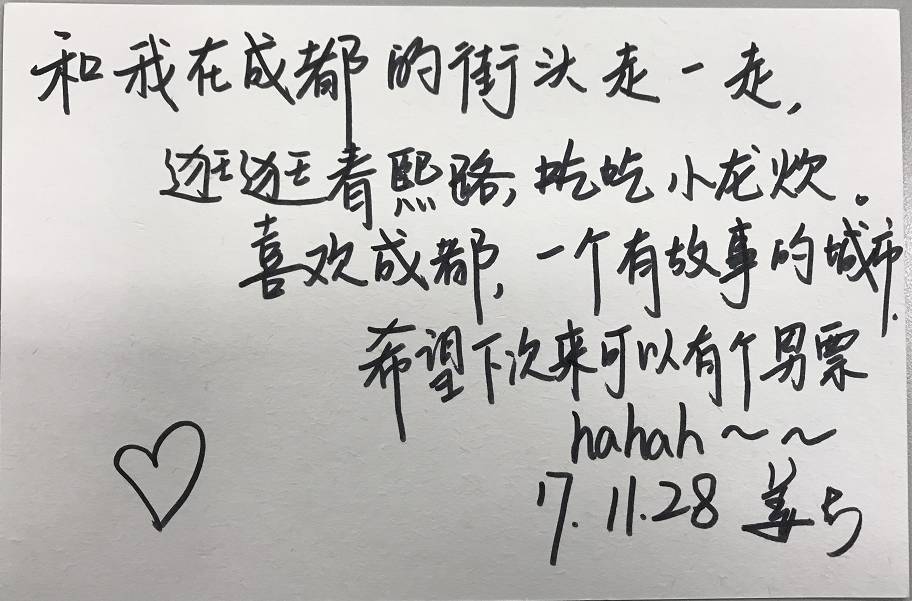 和我在成都的街头走一走,
逛逛春熙路,吃吃小龙炊。
喜欢成都,一个有故事的城市.
希望下次来可以有个男票
hahah~~
17.11.28